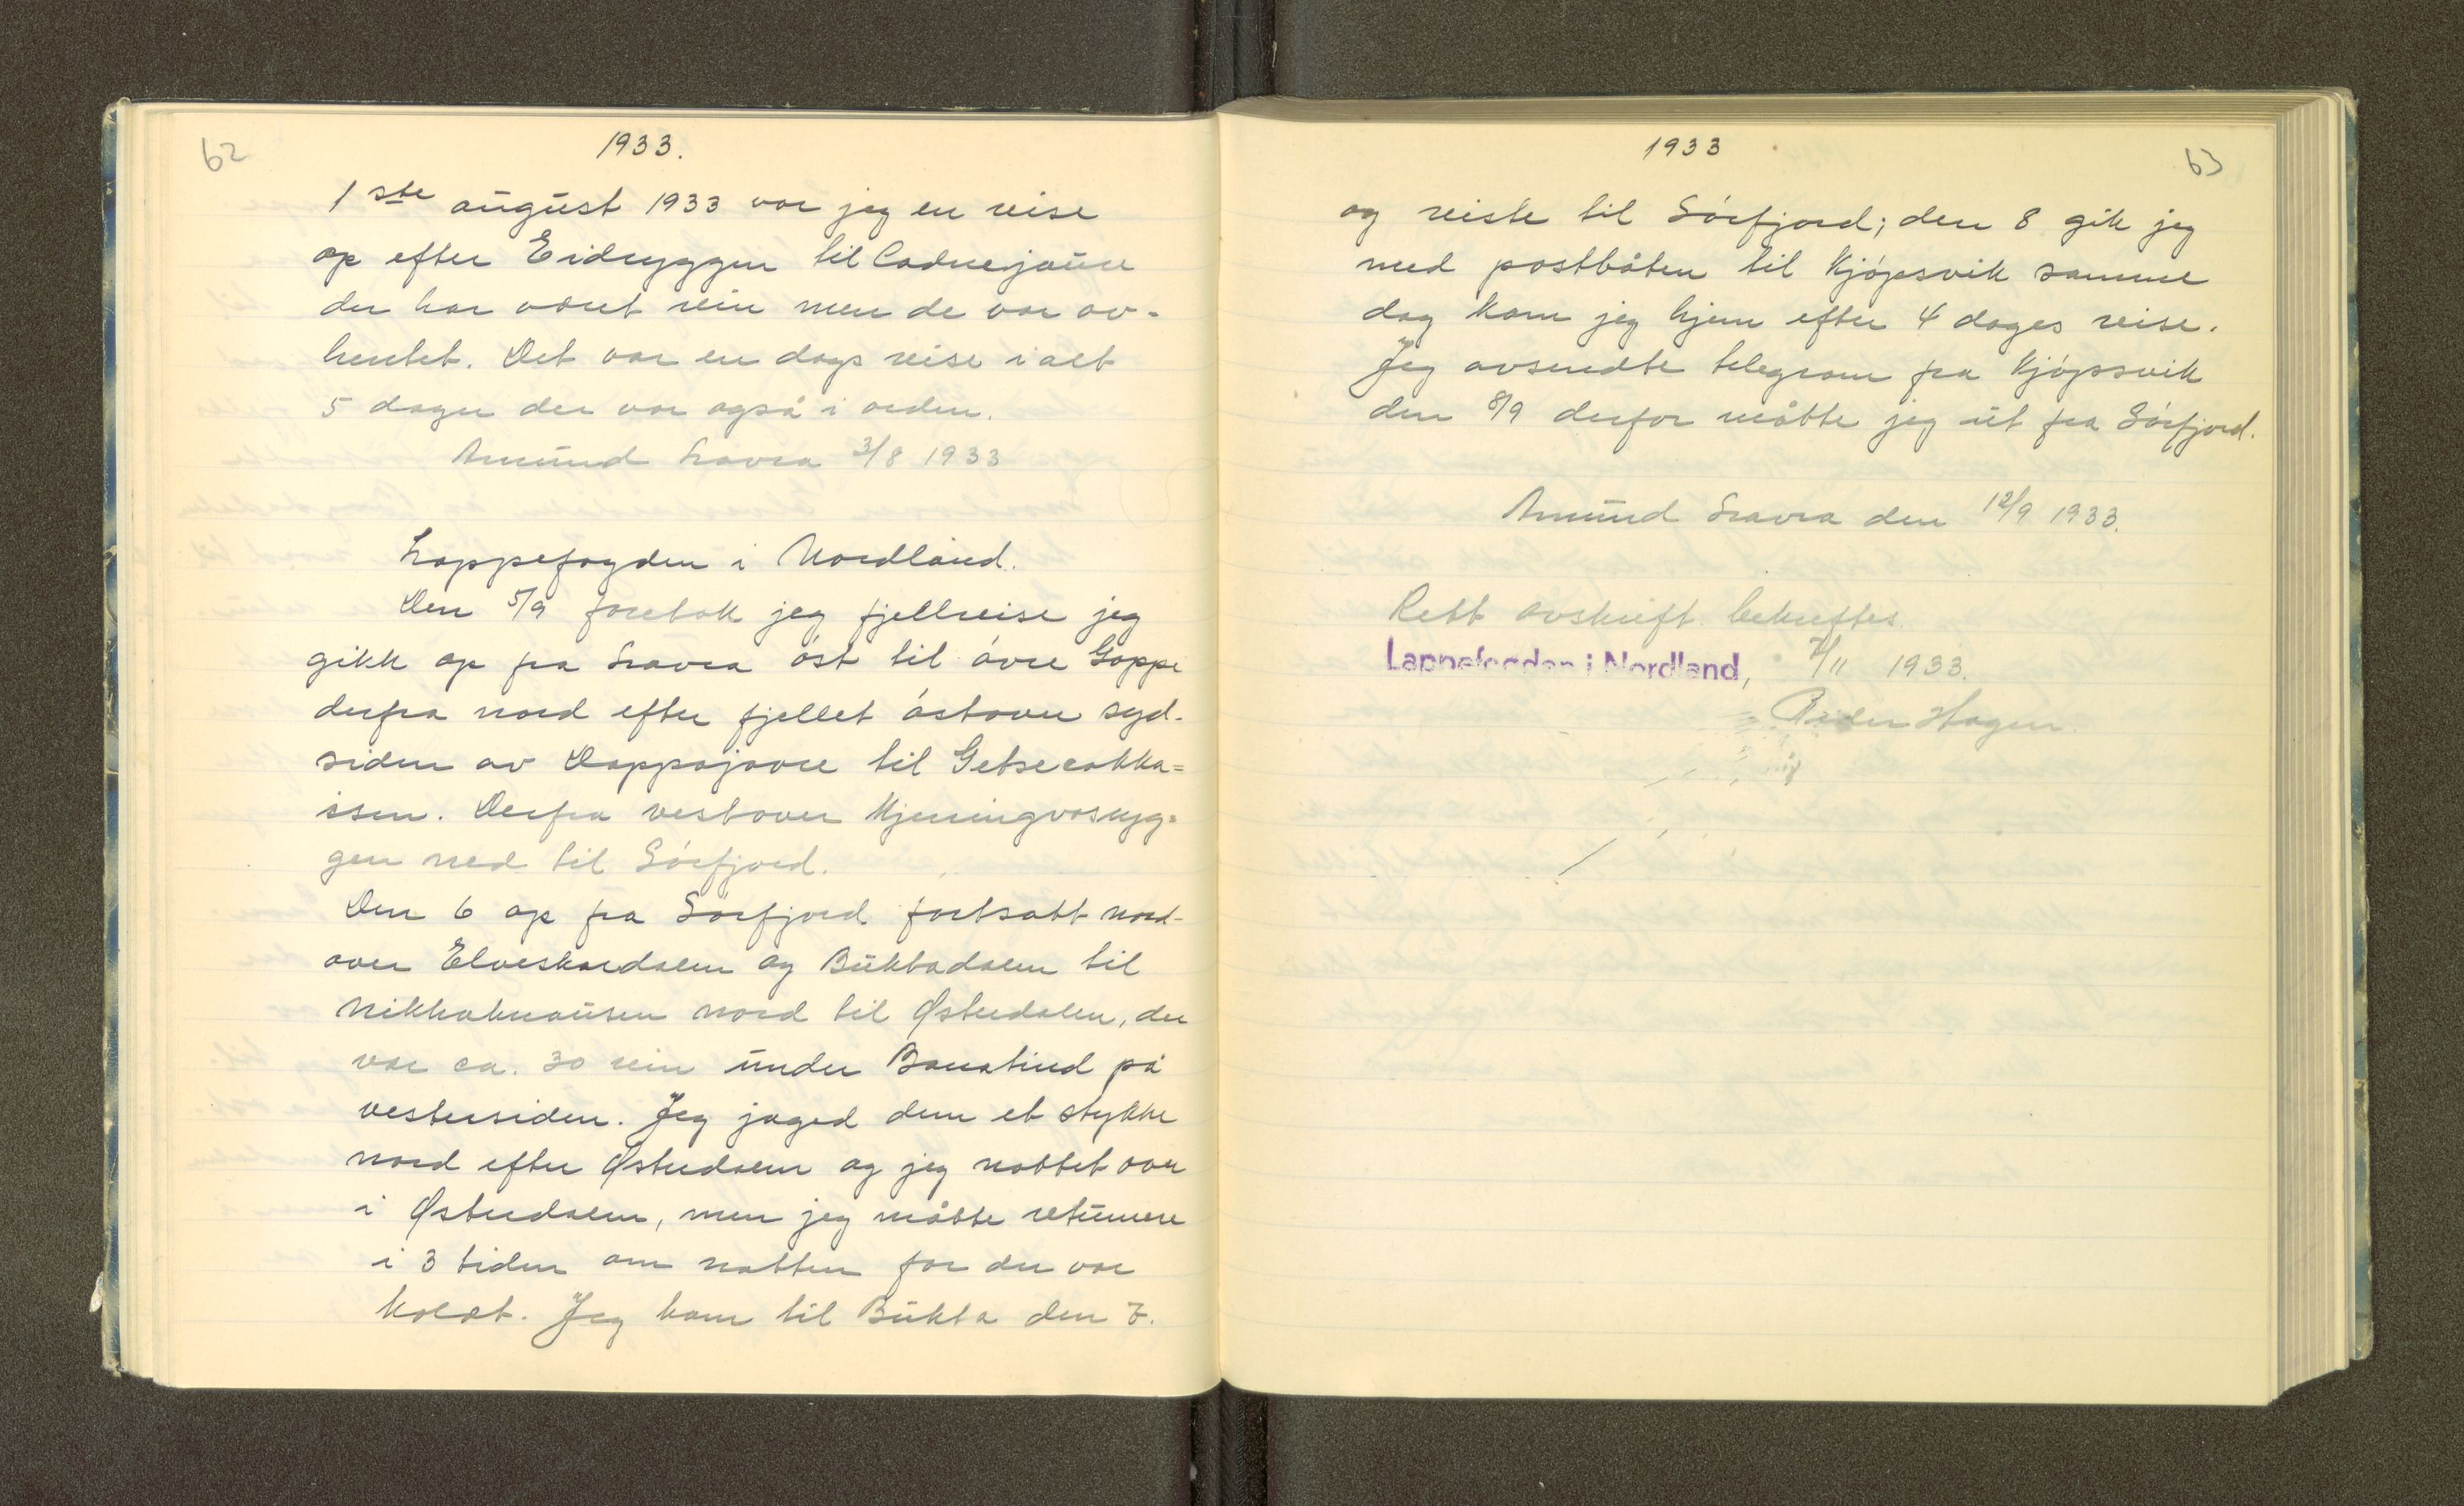 62
1933.
1 ste august 1933 var jeg en reise
op efter Eidryggen til Cadnejaure
der har været rein men de var av-
hentet. Det var en dags reise i alt
5 dager der var også i orden.
Amund Loavra 3/8 1933
Lappefogden i Nordland.
Den 5/9 foretok jeg fjellreise jeg
gikk op fra øst til øvre Goppe
derfra nord efter fjellet østover syd-
siden av Doppajavre til Getsecokka-
issen. Derfra vestover Kjerringvasryg-
gen ned til Sørfjord.
Den 6 op fra Sørfjord fortsatt nord-
over Elveskardalen og Buktadalen til
nord til Østerdalen, der
var ca. 30 rein under Banatind på
vestersiden. Jeg jaged dem et stykke
nord efter Østerdalen og jeg nattet over
i Østerdalen, men jeg måtte returnere
i 3 tiden om natten for der var
koldt. Jeg kom til Bukta den 7.
1933
63
og reiste til Sørfjord; den 8 gik jeg
med postbåten til Kjøpsvik samme
dag kom jeg hjem efter 4 dages reise.
Jeg avsendte telegram fra Kjøpssvik
den 8/9 derfor måtte jeg ut fra Sørfjord.
Amund den 12/9 1933.
Rett avskrift bekreftes
Lappefogden i Nordland, 7/11 1933.
Peder Hagen.